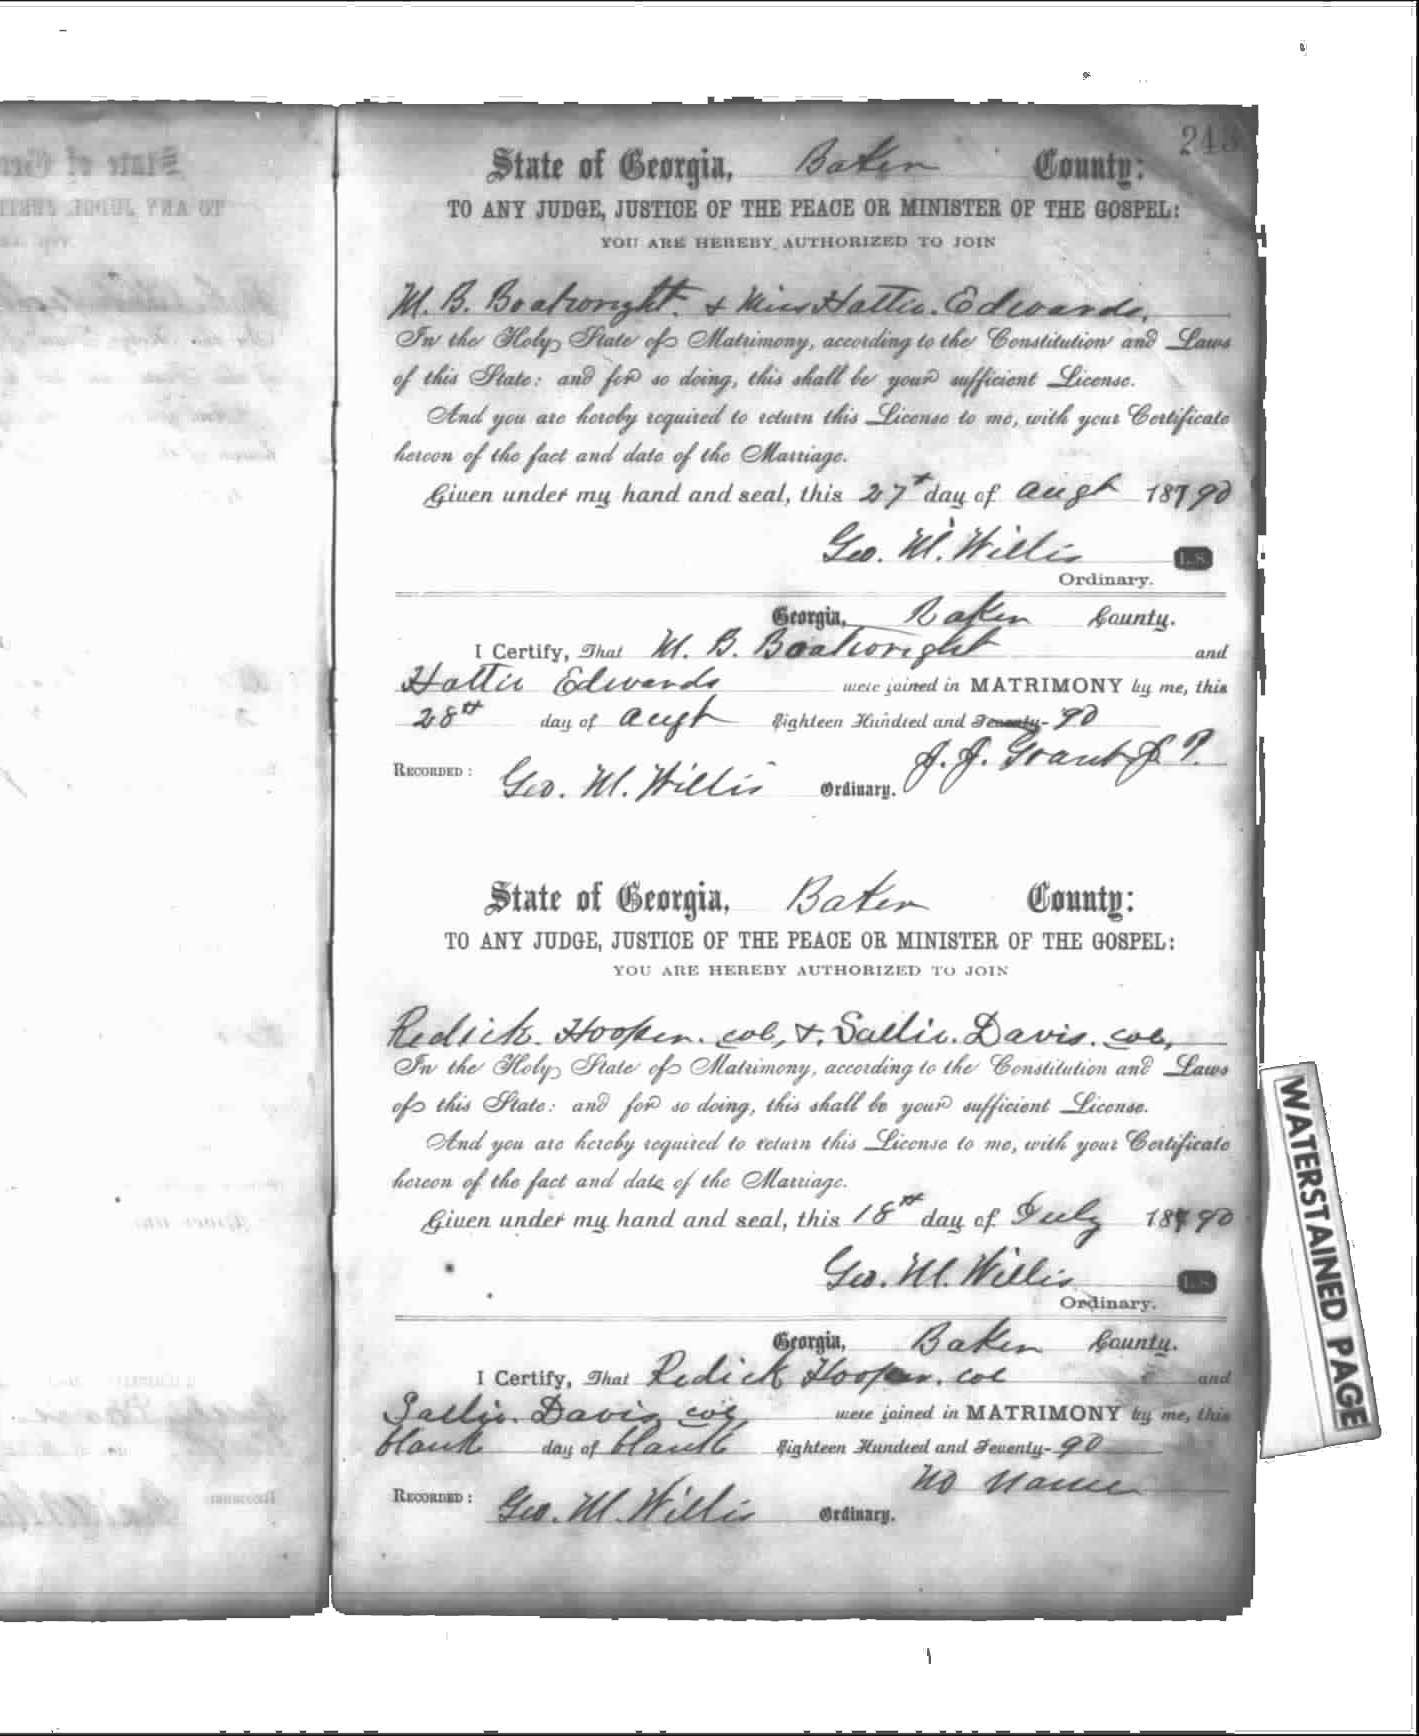 243
State of Georgia, Baker County:
TO ANY JUDGE, JUSTICE OF THE PEACE OR MINISTER OF THE GOSPEL:
YOU ARE HEREBY AUTHORIZED TO JOIN
M. B. Boatwright. & Miss Hattie. Edwards.
In the Holy State of Matrimony, according to the Constitution and Laws
of this State: and for so doing, this shall be your sufficient License.
And you are hereby required to return this License to me, with your Certificate
hereon of the fact and date of the Marriage.
Given under my hand and seal, this 27th day of Augt 18790
Geo. M. Willis L. S.
Ordinary.
Georgia, Baker County.
I Certify, That M. B. Boatwright and
Hattie Edwards were joined in MATRIMONY by me, this
28th day of Augt Eighteen Hundred and Seventy- 90
J. J. Grant J. P.
RECORDED: Geo. M. Willis Ordinary.
State of Georgia, Baker County:
TO ANY JUDGE, JUSTICE OF THE PEACE OR MINISTER OF THE GOSPEL:
YOU ARE HEREBY AUTHORIZED TO JOIN
Redick. Hooper. col, &. Sallie. Davis. col,
In the Holy State of Matrimony, according to the Constitution and Laws
of this State: and for so doing, this shall be your sufficient License.
And you are hereby required to return this License to me, with your Certificate
hereon of the fact and date of the Marriage.
Given under my hand and seal, this 18th day of July 18790
Geo. M. Willis L. S.
Ordinary.
Georgia, Baker County.
I Certify, That Redick Hooper. col and
Sallie. Davis, col, were joined in MATRIMONY by me, this
blank day of blank Eighteen Hundred and Seventy- 90
No Name
RECORDED: Geo. M. Willis Ordinary.
WATERSTAINED PAGE